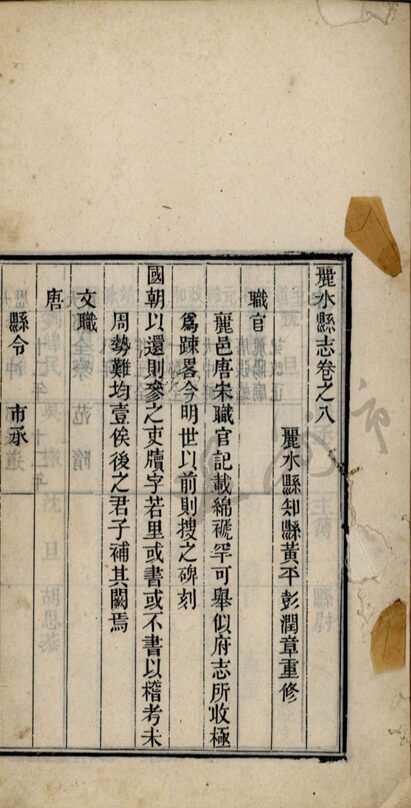 麗水縣志卷之八
麗水縣知縣黃平彭潤章重修
職官
麗邑唐宋職官記載綿褫罕可舉似府志所收極
爲踈畧今明世以前則搜之碑刻
國朝以還則參之吏牘字若里或書或不書以稽考未
周勢難均壹俟後之君子補其闕焉
文職
唐
縣令